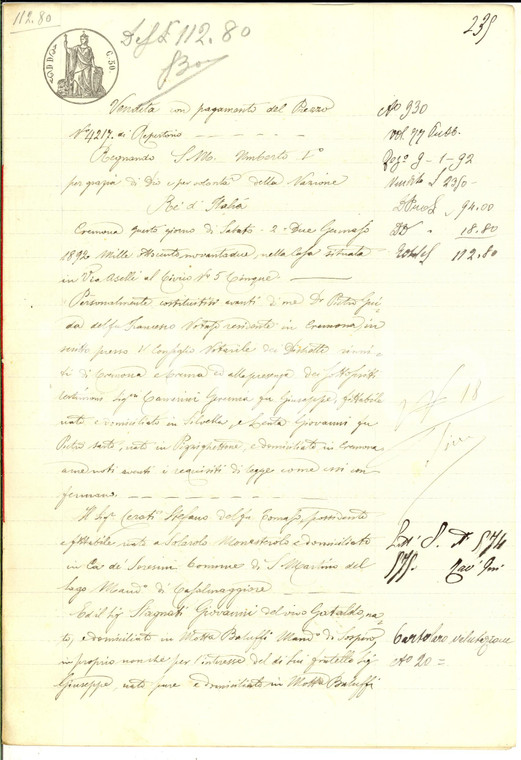 112.80
Def £ 112.80
235
C. 50
Vendita con pagamento del Prezzo
N° 4217. di Repertorio
Regnando S. M. Umberto I°
per grazia di Dio e per volontà della Nazione
Re d'Italia
Cremona questo giorno di Sabato - 2 - Due Gennajo
1892 Mille Ottocento novantadue, nella Casa situata
in Via Aselli al Civico N° 5 Cinque
Personalmente costituitisi avanti di me Dr Pietro
del fu Francesco Notajo residente in Cremona, in
scritto presso il Consiglio Notarile dei Distretti riuni
ti di Cremona e Crema ed alla presenza dei
testimoni Sig.ri fu Giuseppe,
nato e domiciliato in e Giovanni fu
Pietro nato in Pizzighettone, e domiciliato in Cremona
a me noti aventi i requisiti di legge come essi con
fermano.
Il Sig. Cerati Stefano del fu Tomaso, possidente
nato a Solarolo Monasterolo e domiciliato
in Ca' de Soresini Comune di S. Martino del
lago Mand.° di Casalmaggiore
Ed il Sig. Stagnati Giovanni del vivo Gataldo, na
to, e domiciliato in Motta Baluffi Mand.° di Sospiro,
in proprio non che per l'interesse del di lui fratello Sig.
Giuseppe, nato pure e domiciliato in Motta Baluffi
N° 930
vol. 77 Pubb.
Reg° 9 - 1 - 92
Vendita £ 2350 -
94.00
18.80
Totale £ 112.80
18
N° 20 =